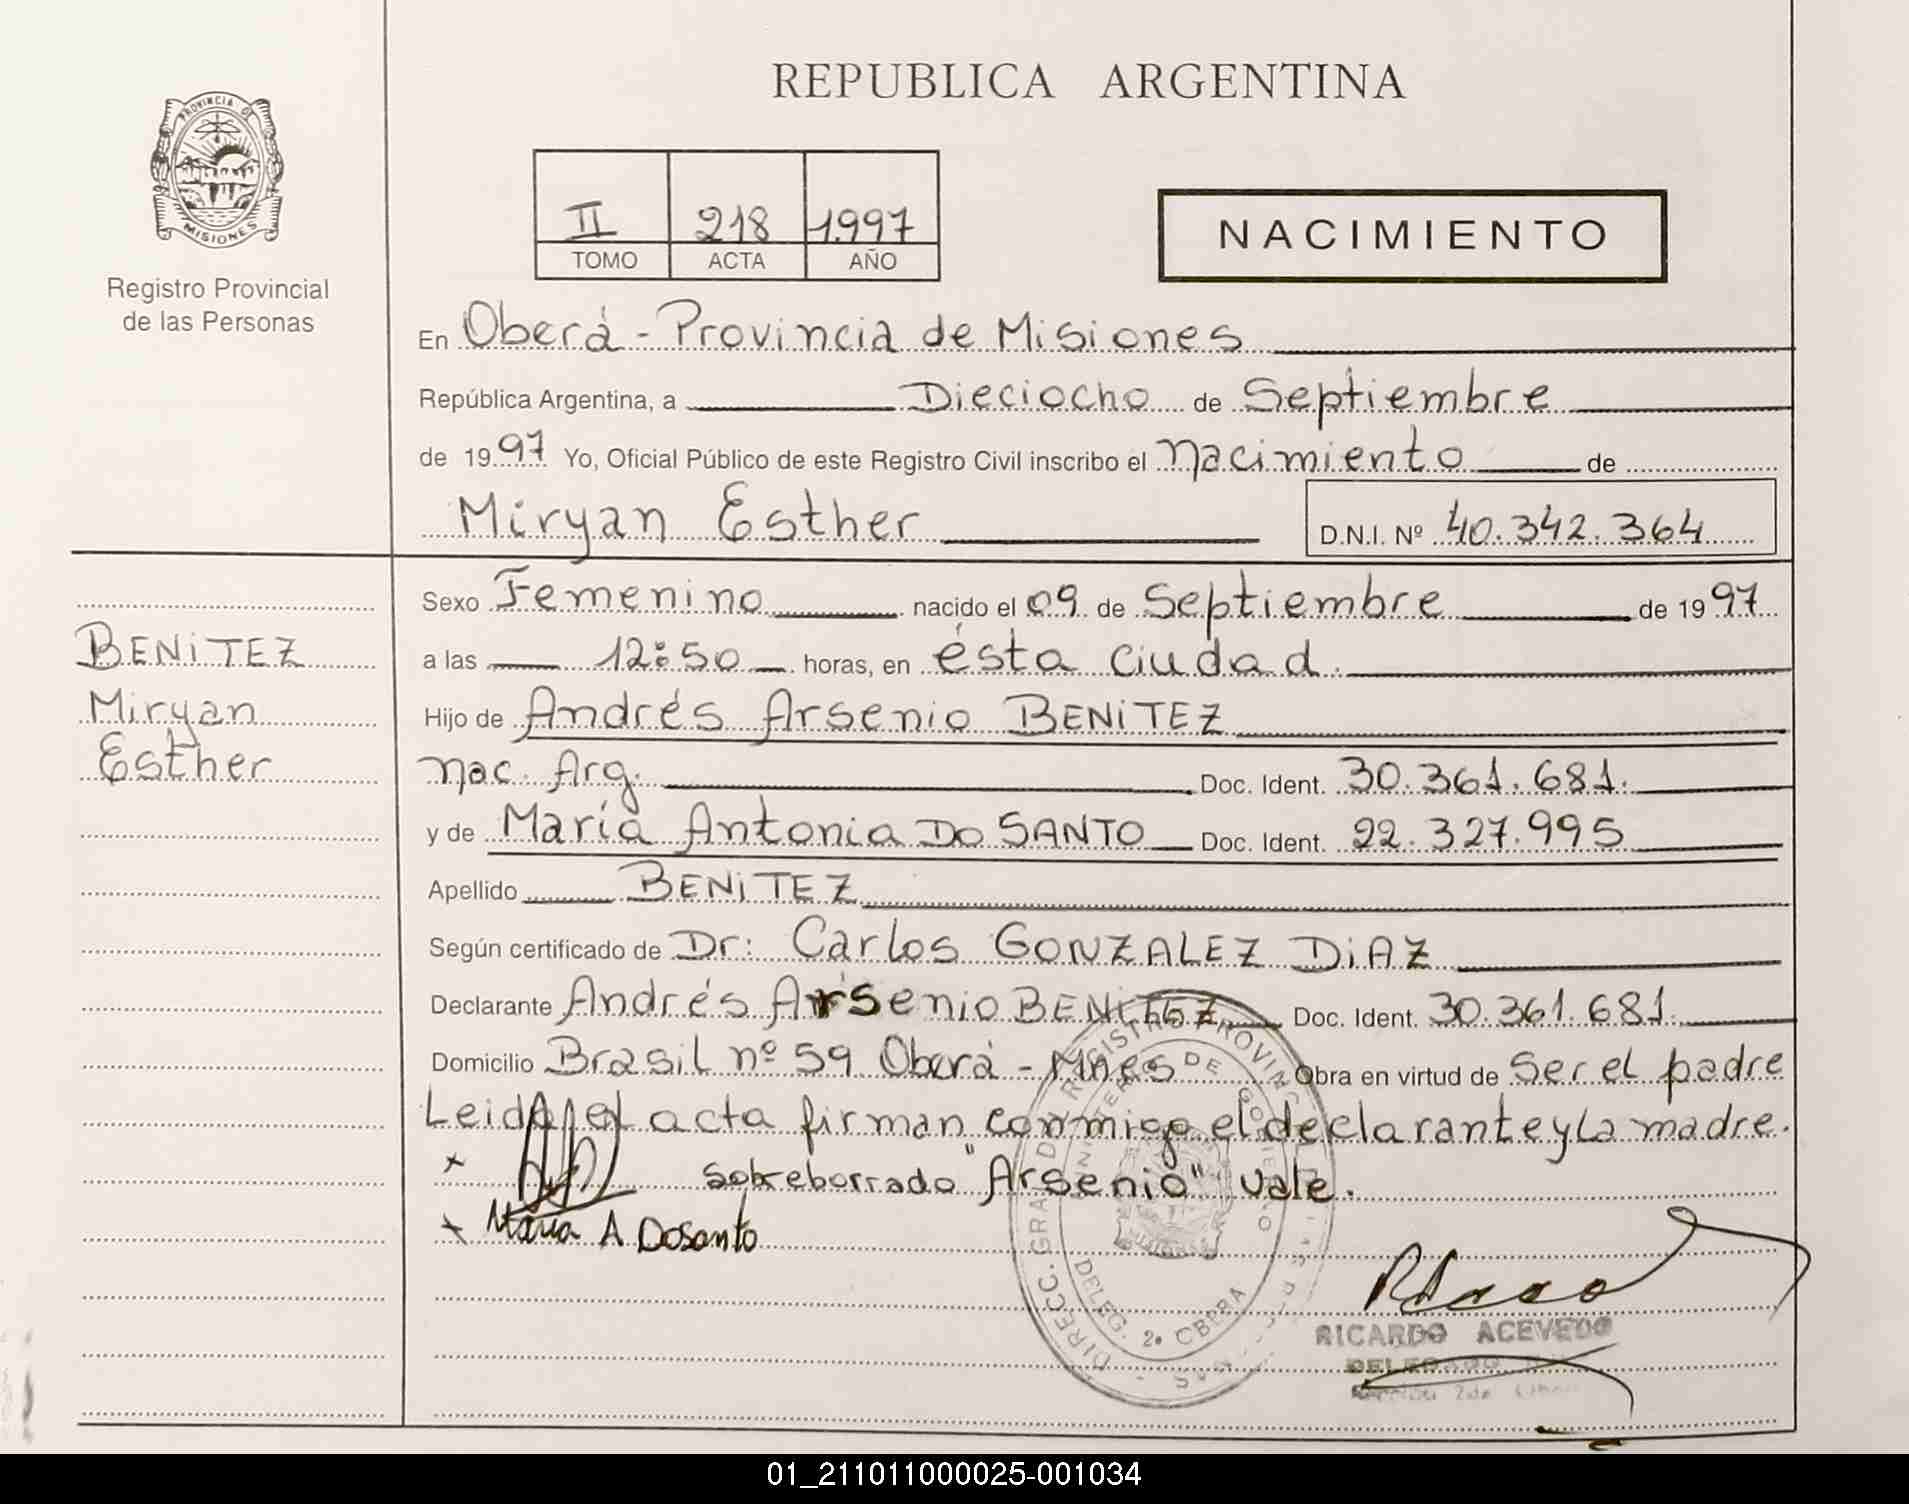 REPUBLICA ARGENTINA
PROVINCIA DE
MISIONES
Registro Provincial
de las Personas
II 218 1.997
TOMO ACTA AÑO
NACIMIENTO
En Oberá - Provincia de Misiones
República Argentina, a Dieciocho de Septiembre
de 1997 Yo, Oficial Público de este Registro Civil inscribo el Nacimiento de
Miryan Esther D.N.I. Nº 40.342.364
BENITEZ
Miryan
Esther
Sexo Femenino nacido el 09 de Septiembre de 1997
a las 12:50 horas, en ésta ciudad.
Hijo de Andrés Arsenio BENITEZ
Nac. Arg. Doc. Ident. 30.361.681.
y de María Antonia DO SANTO Doc. Ident. 22.327.995
Apellido BENITEZ
Según certificado de Dr: Carlos GONZALEZ DIAZ
Declarante Andrés Arsenio BENITEZ Doc. Ident. 30.361.681.
Domicilio Brasil nº 59 Oberá - Mnes Obra en virtud de Ser el padre
Leida el acta firman conmigo el declarante y La madre.
x sobreborrado "Arsenio" vale.
x Maria A Dosanto
RICARDO ACEVEDO
DELEGADO
01_211011000025-001034